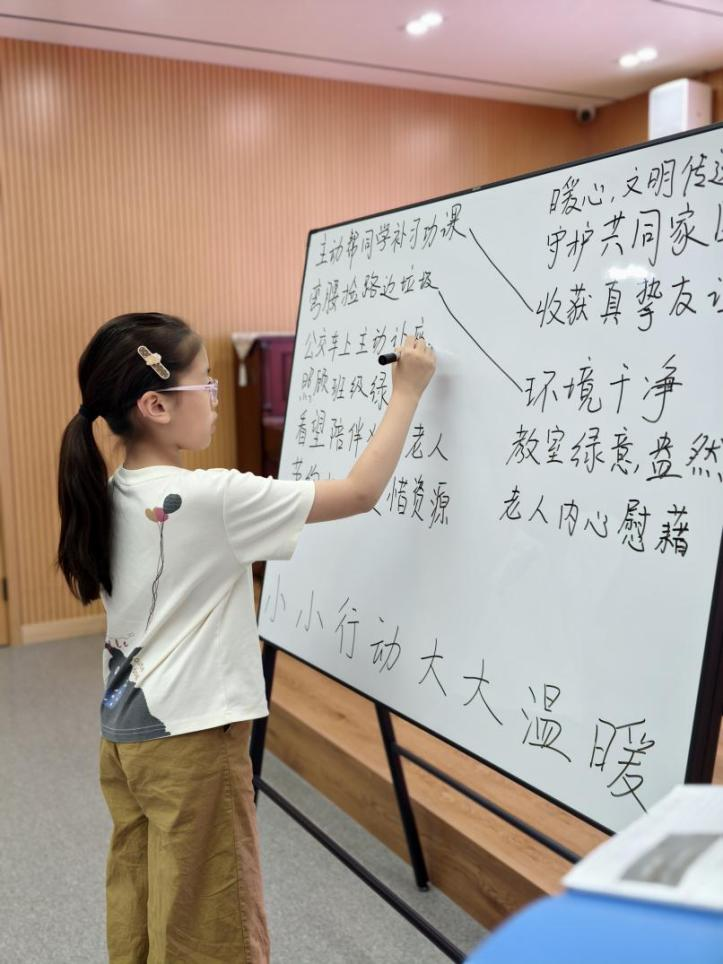 主动帮同学补习功课
弯腰捡路边垃圾
公交车上主动让座
照顾班级绿
看望陪伴 老人
节约 惜资源
暖心,文明传递
守护共同家园
收获真挚友谊
环境干净
教室绿意盎然
老人内心慰藉
小小行动大大温暖